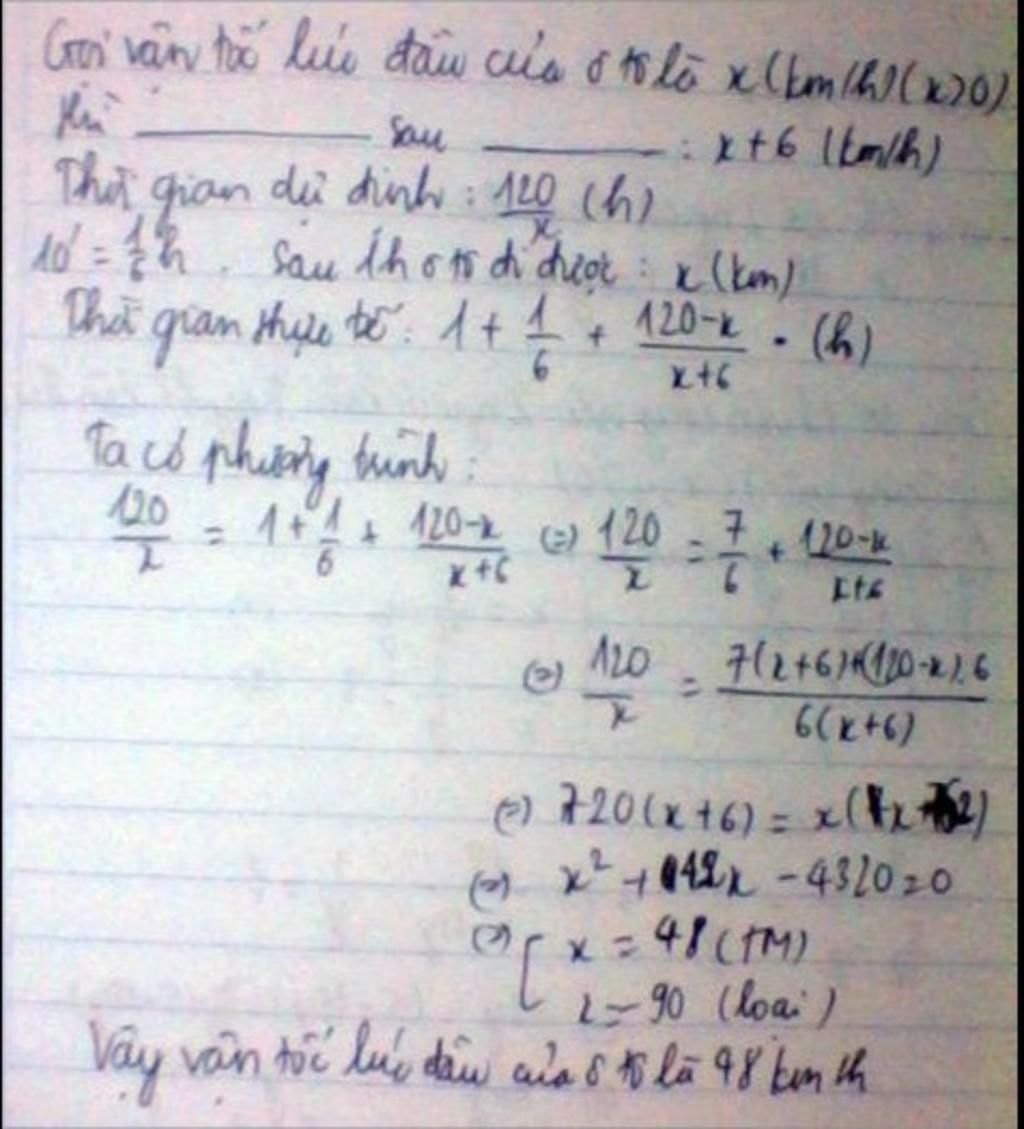 Gọi vận tốc lúc đầu của ô tô là x (km/h) (x>0)
thì ___ sau ___ : x+6 (km/h)
Thời gian dự định : 120/x (h)
10' = 1/6 h . Sau 1h ô tô đi được : x (km)
Thời gian thực tế : 1 + 1/6 + (120-x)/(x+6) . (h)
Ta có phương trình :
120/x = 1 + 1/6 + (120-x)/(x+6) (=) 120/x = 7/6 + (120-x)/(x+6)
(=) 120/x = (7(x+6)+(120-x).6)/(6(x+6))
(=) 720(x+6) = x(x+762)
(=) x² + 42x - 4320 = 0
(=) [ x = 48 (TM)
x = -90 (loại)
Vậy vận tốc lúc đầu của ô tô là 48 km/h